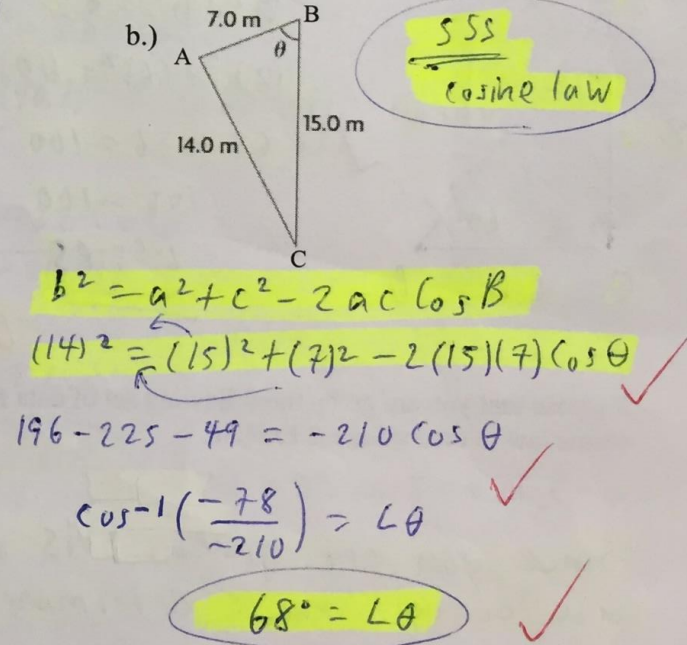 b.)
7.0 m
B
θ
A
14.0 m
15.0 m
C
SSS
cosine law
b² = a² + c² - 2ac Cos B
(14)² = (15)² + (7)² - 2(15)(7) Cos θ
196 - 225 - 49 = -210 Cos θ
cos⁻¹(-78/-210) = ∠θ
68° = ∠θ